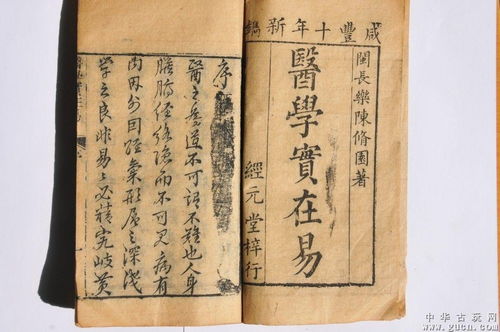 咸豐十年新鐫
閩長樂陳脩園著
醫學實在易
經元堂梓行
序
醫之爲道不可謂不難也人身
臟腑經絡隱而不可見病有
內因外因經氣形層之深淺
學之良非易〻必精究岐黃
中华古玩网
www.gucn.com